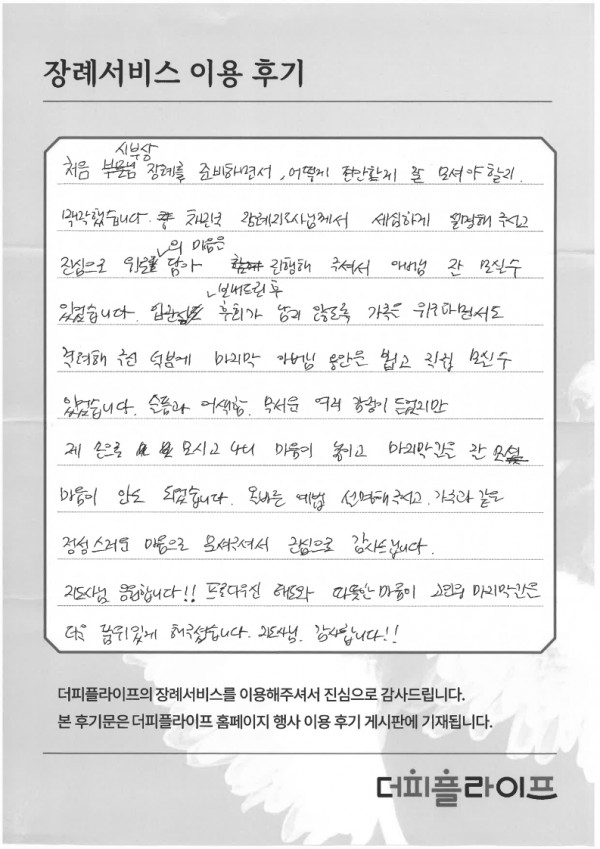 장례서비스 이용 후기
시부상
처음 장례를 준비하면서, 어떻게 편안할게 잘 모셔야 할지
막막했습니다. 장례지도사님께서 세심하게 설명해 주시고
의 마음은
진심으로 위로 담아 진행해 주셔서 아버님 잘 모실수
보내드린 후
있었습니다. 후회가 남지 않도록 가족은 위로하면서도
격려해 주신 덕분에 마지막 아버님 용안은 뵙고 직접 모실수
있었습니다. 슬픔과 어색함. 무서운 여러 감정이 들었지만
제 손으로 모시고 나니 마음이 놓이고 마지막길은 잘
마음이 안도 되었습니다. 올바른 예법 설명해주시고. 가족과 같은
정성스러운 마음으로 모셔주셔서 진심으로 감사드립니다.
지도사님 응원합니다!! 프로다우신 태도와 따뜻한 마음이 고인의 마지막길은
더욱 품위있게 해주셨습니다. 지도사님. 감사합니다!!
더피플라이프의 장례서비스를 이용해주셔서 진심으로 감사드립니다.
본 후기문은 더피플라이프 홈페이지 행사 이용 후기 게시판에 기재됩니다.
더피플라이프